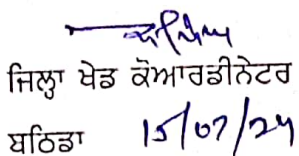 ਜਿਲ੍ਹਾ ਖੇਡ ਕੋਆਰਡੀਨੇਟਰ
ਬਠਿੰਡਾ 15/07/24